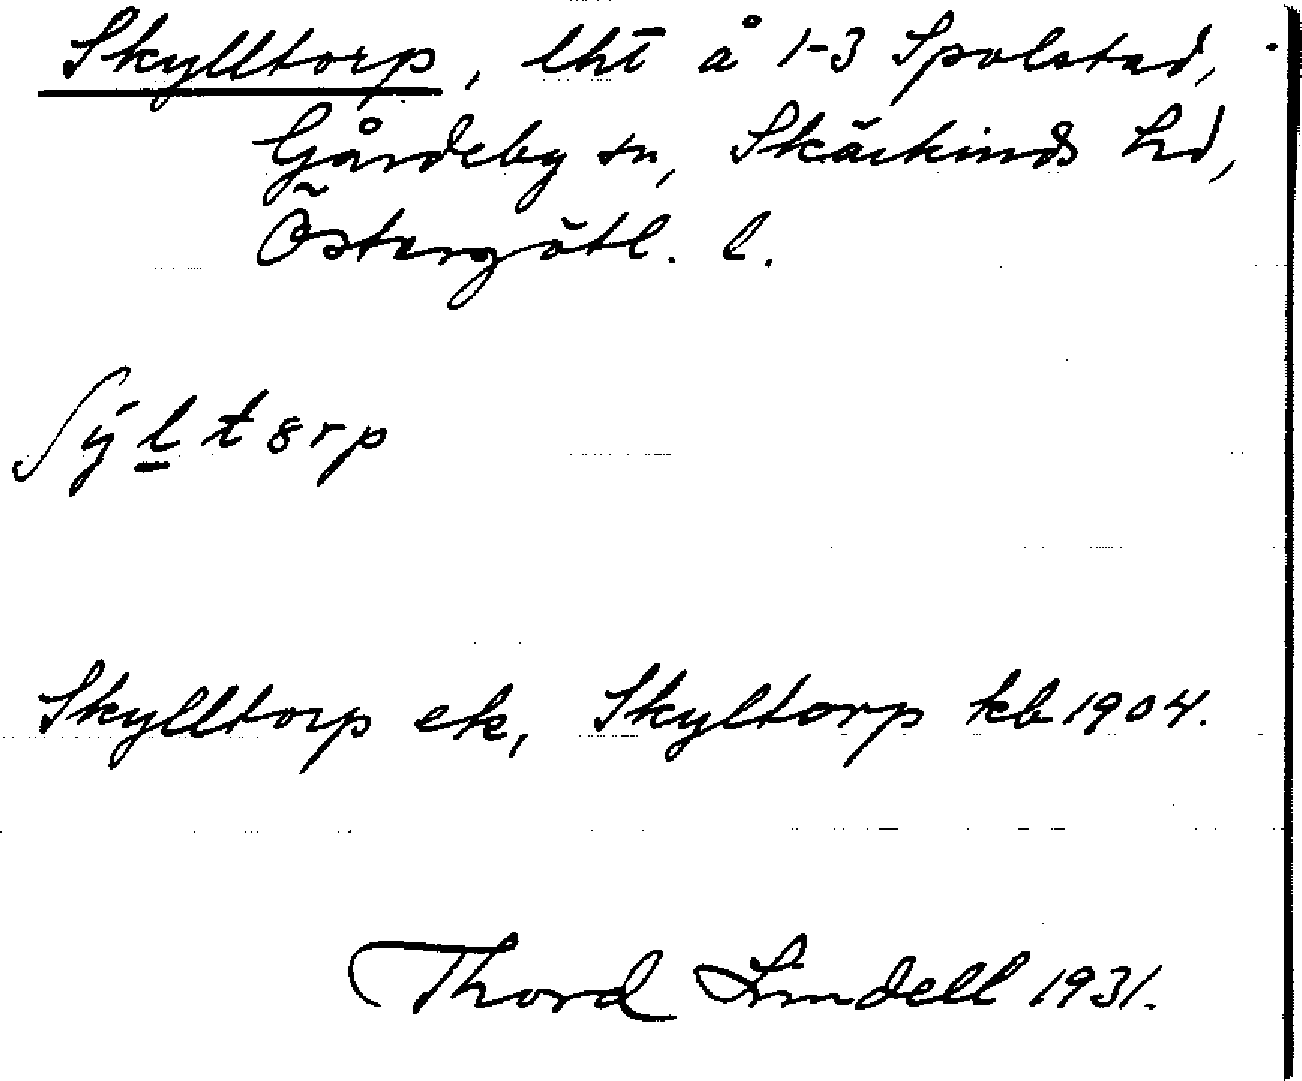 Skylltorp, lht å 1-3 Spolstad,
Gårdeby sn, Skärkinds hd,
Östergötl. l.
ʃýl̲t8rp
Skylltorp ek, Skyltorp kb 1904.
Thord Lindell 1931.